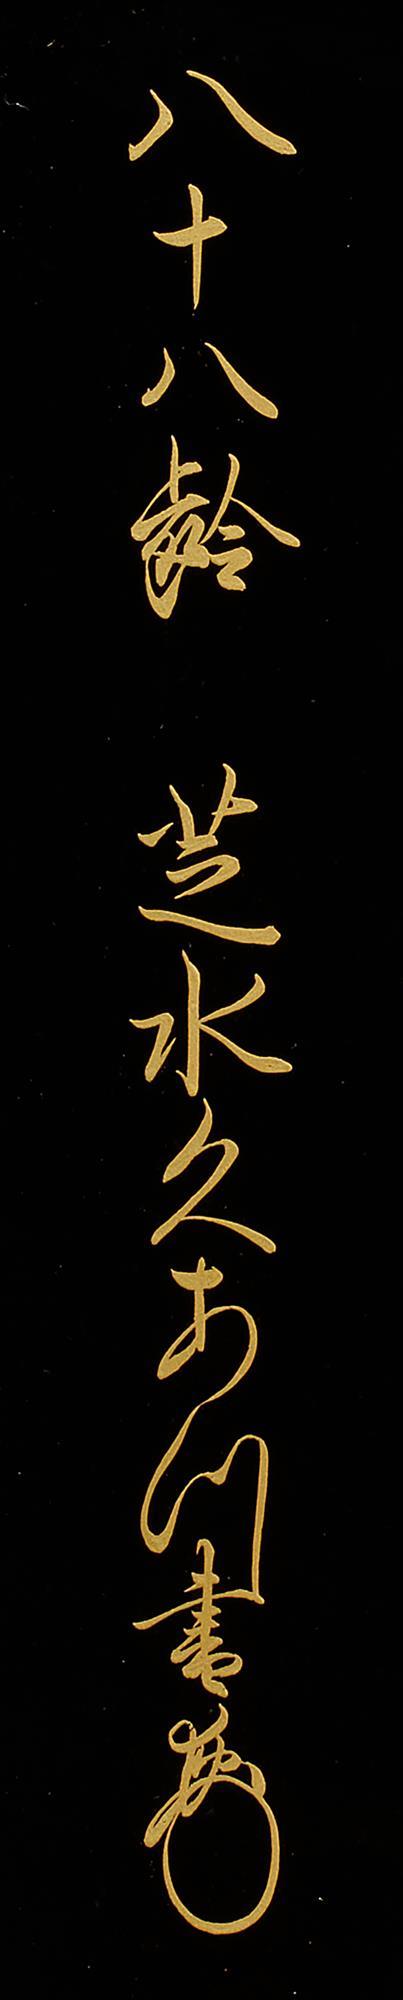 八十八齢 芝水久あ川書